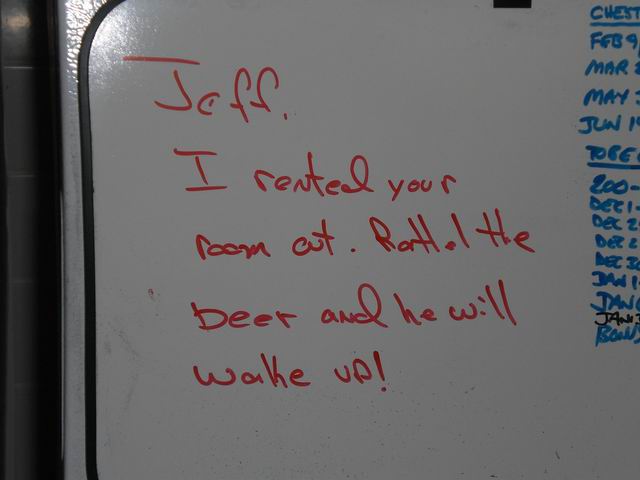 Jeff,
I rented your
room out. Rattel the
beer and he will
wake up!
CHEST
FEB 9,
MAR 2
MAY
JUN 19
TOBE
200-
DEC 1-
DEC 2
DEC 2
DEC 30
JAN 1
JAN
JAN